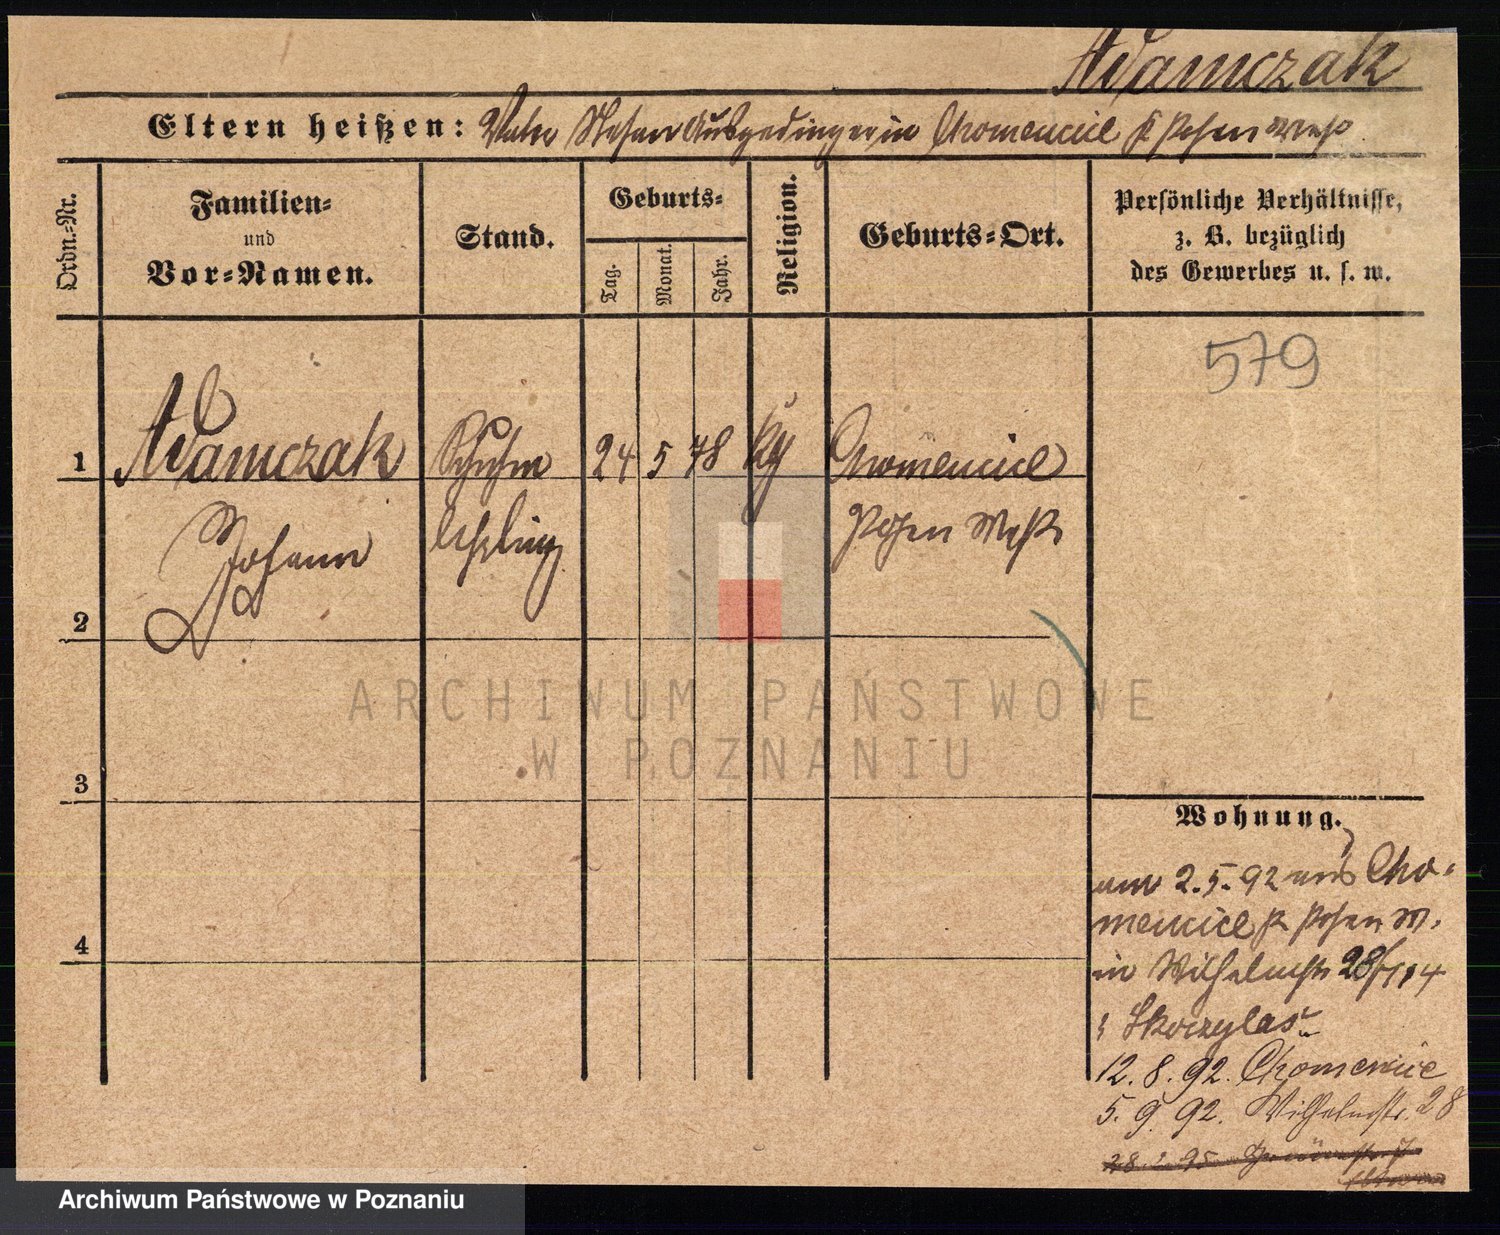 Adamczak
Eltern heißen: Vater Stefan Ausgedinger in Chomencice Kr Posen West
Ordn.-Nr.
Familien-
und
Vor-Namen.
Stand.
Geburts-
Tag.
Monat.
Jahr.
Religion.
Geburts-Ort.
Persönliche Verhältnisse,
z. B. bezüglich
des Gewerbes u. s. w.
579
1 Adamczak Schuhm 24 5 78 Chomencice
Johann lehrling Posen West
2
3
4
ARCHIWUM PAŃSTWOWE
W POZNANIU
Wohnung.
am 2.5.92 aus Cho-
mencice Kr Posen W.
in Wilhelmstr 28
Skoczylas
12.8.92. Chomencice
5.9.92. Wilhelmstr. 28
Archiwum Państwowe w Poznaniu